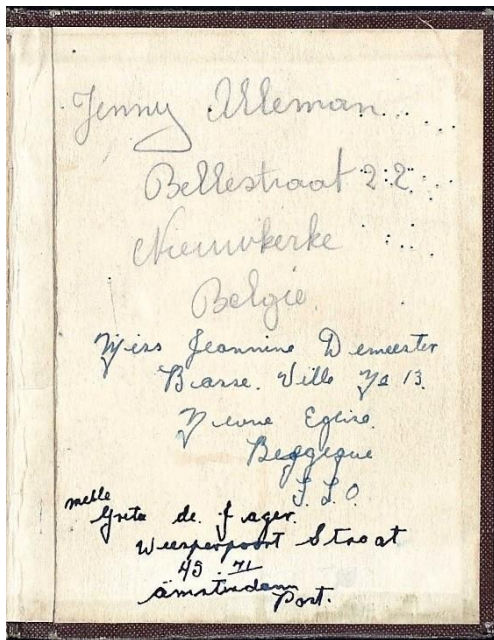 Jenny Alleman
Bellestraat 22
Nieuwkerke
Belgie
Miss Jeannine Demeester
Basse. Ville No 13.
Neuve Eglise.
Beggique
melle
Greta de Jager.
Weesperpoort Straat
49. 71
amsterdam
Post.